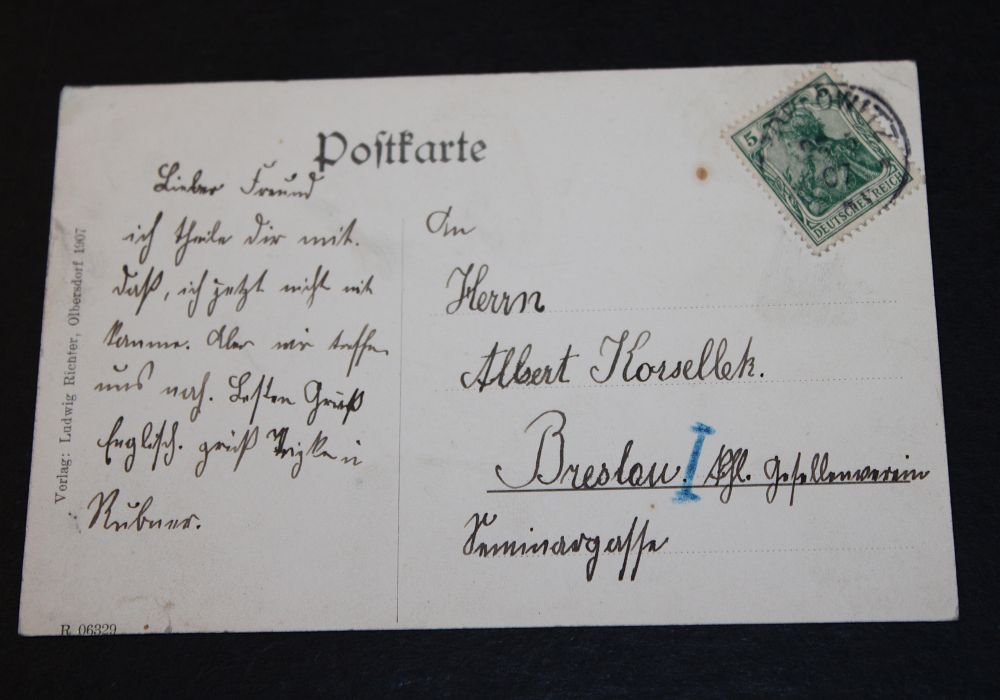 Postkarte
Lieber Freund
ich theile dir mit.
daß, ich jetzt nicht mit
komme. Aber wir treffen
uns noch. Besten Gruß
Englisch. grüß
Rubner.
An
Herrn
Albert Korsellek.
Breslau. I Kathl. Gesellenverein
Seminargasse
5
DEUTSCHES REICH
07
Verlag: Ludwig Richter, Olbersdorf 1907
R 06329